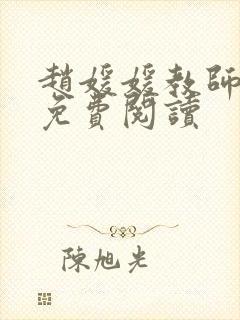 趙媛媛教師
免費閱讀
陳旭光